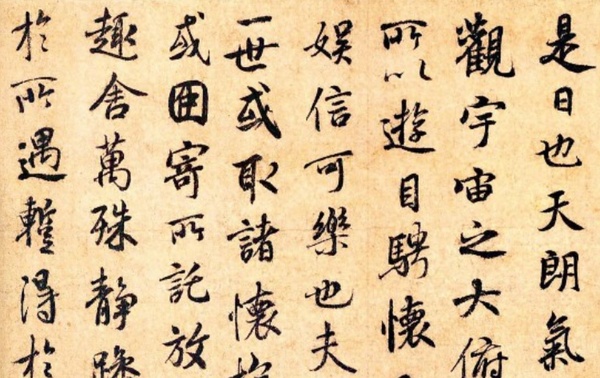 是日也天朗氣
觀宇宙之大俯
所以遊目騁懷
娛信可樂也夫
一世或取諸懷抱
或因寄所託放
趣舍萬殊靜躁
於所遇蹔得於